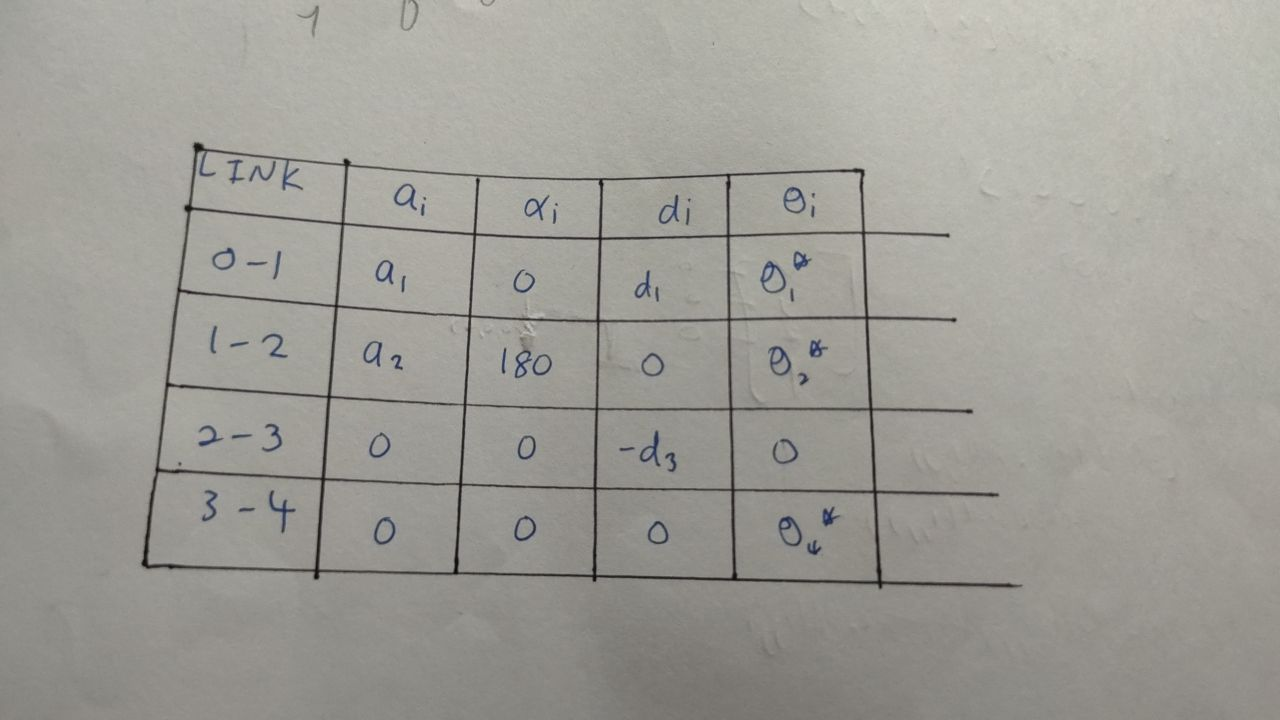 1 0
LINK aᵢ αᵢ dᵢ θᵢ
0-1 a₁ 0 d₁ θ₁*
1-2 a₂ 180 0 θ₂*
2-3 0 0 -d₃ 0
3-4 0 0 0 θ₄*